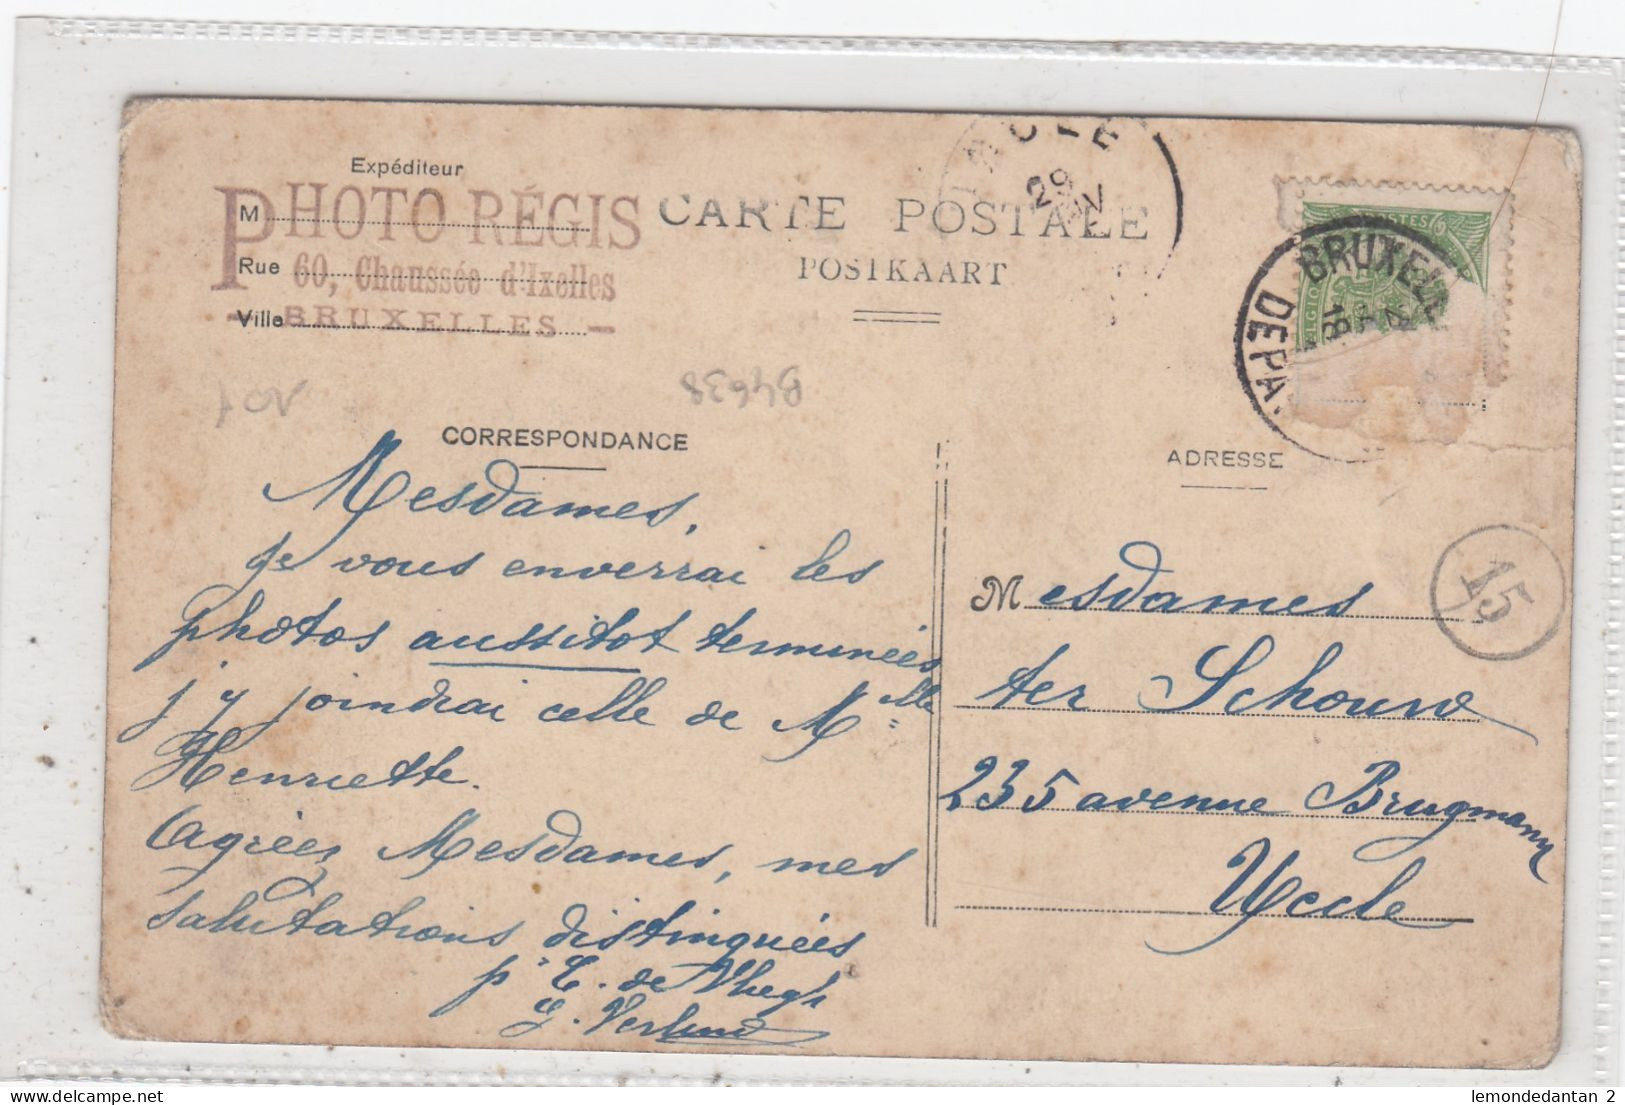 Expéditeur
PHOTO RÉGIS
M
Rue 60, Chaussée d'Ixelles
Ville - BRUXELLES -
CARTE POSTALE
POSTKAART
29
BRUXELLES
DEPA
POSTES 5
B4638
CORRESPONDANCE
Mesdames,
je vous enverrai les
photos aussitot terminées
j'y joindrai celle de Mlle
Henriette.
Agréez Mesdames, mes
salutations distinguées
pr E. de
G.
ADRESSE
Mesdames
ter Schouw
235 avenue Brugmann
Uccle
15
lemondedantan 2